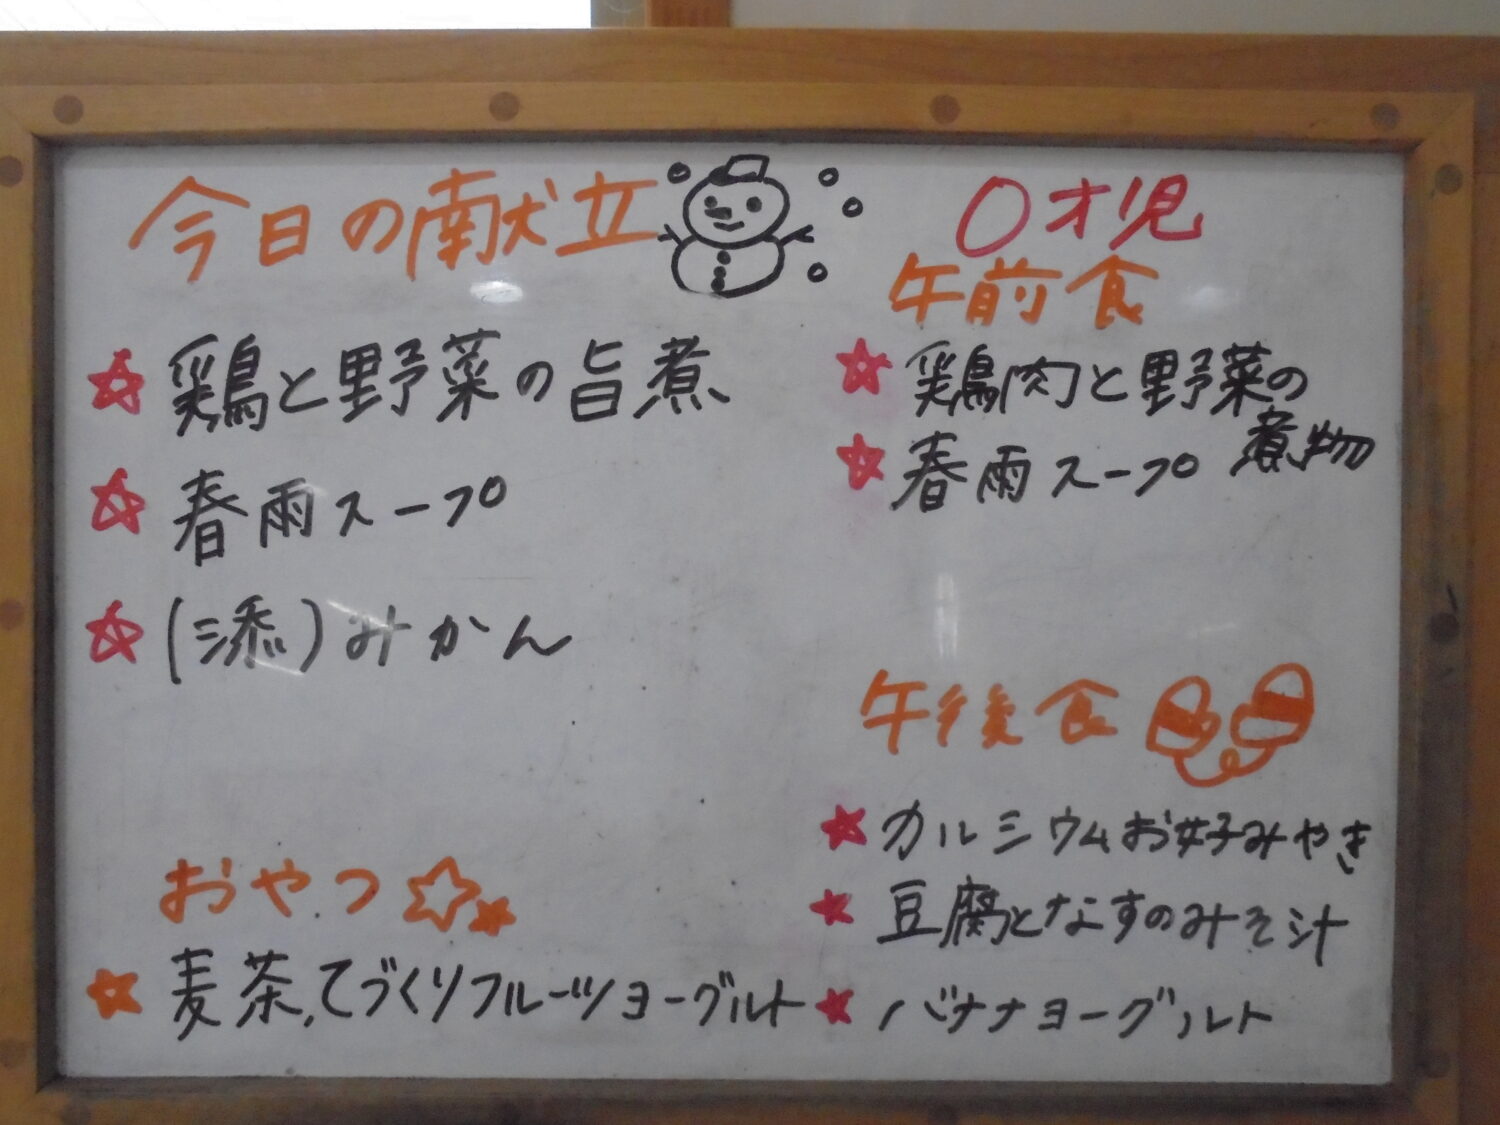 今日の献立
鶏と野菜の旨煮
春雨スープ
(添)みかん
おやつ
麦茶、てづくりフルーツヨーグルト
0才児
午前食
鶏肉と野菜の
煮物
春雨スープ
午後食
カルシウムお好みやき
豆腐となすのみそ汁
バナナヨーグルト